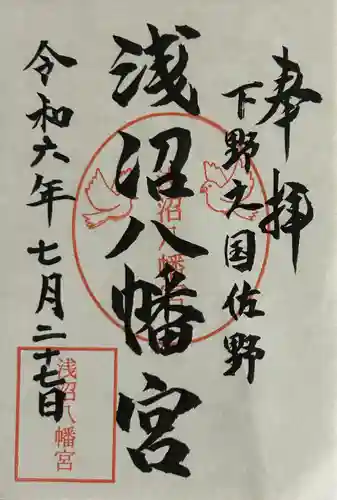 奉拝
下野之国佐野
浅沼八幡宮
令和六年七月二十七日
浅沼八幡宮
浅沼八幡宮